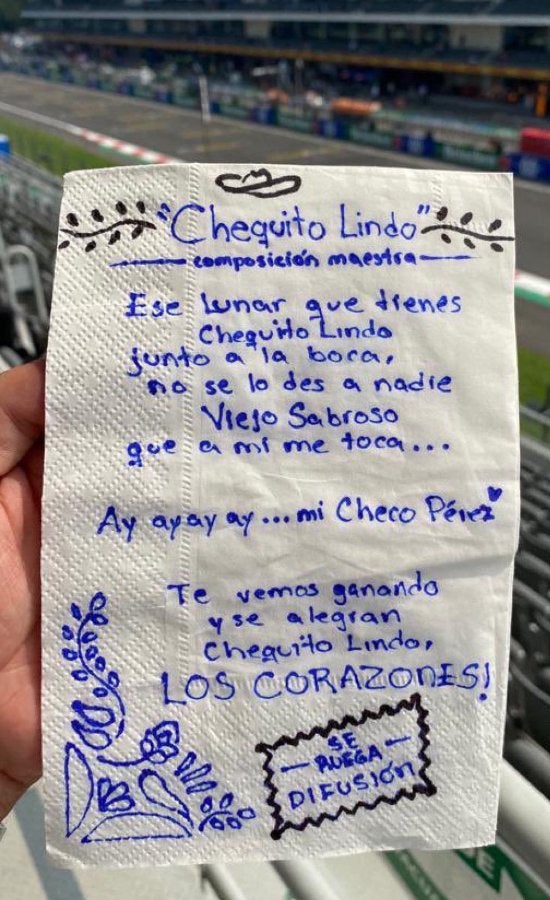 "Chequito Lindo"
composición maestra
Ese lunar que tienes
Chequito Lindo
junto a la boca,
no se lo des a nadie
Viejo Sabroso
que a mí me toca...
Ay ay ay ay... mi Checo Pérez
Te vemos ganando
y se alegran
Chequito Lindo,
LOS CORAZONES!
SE
RUEGA
DIFUSIÓN